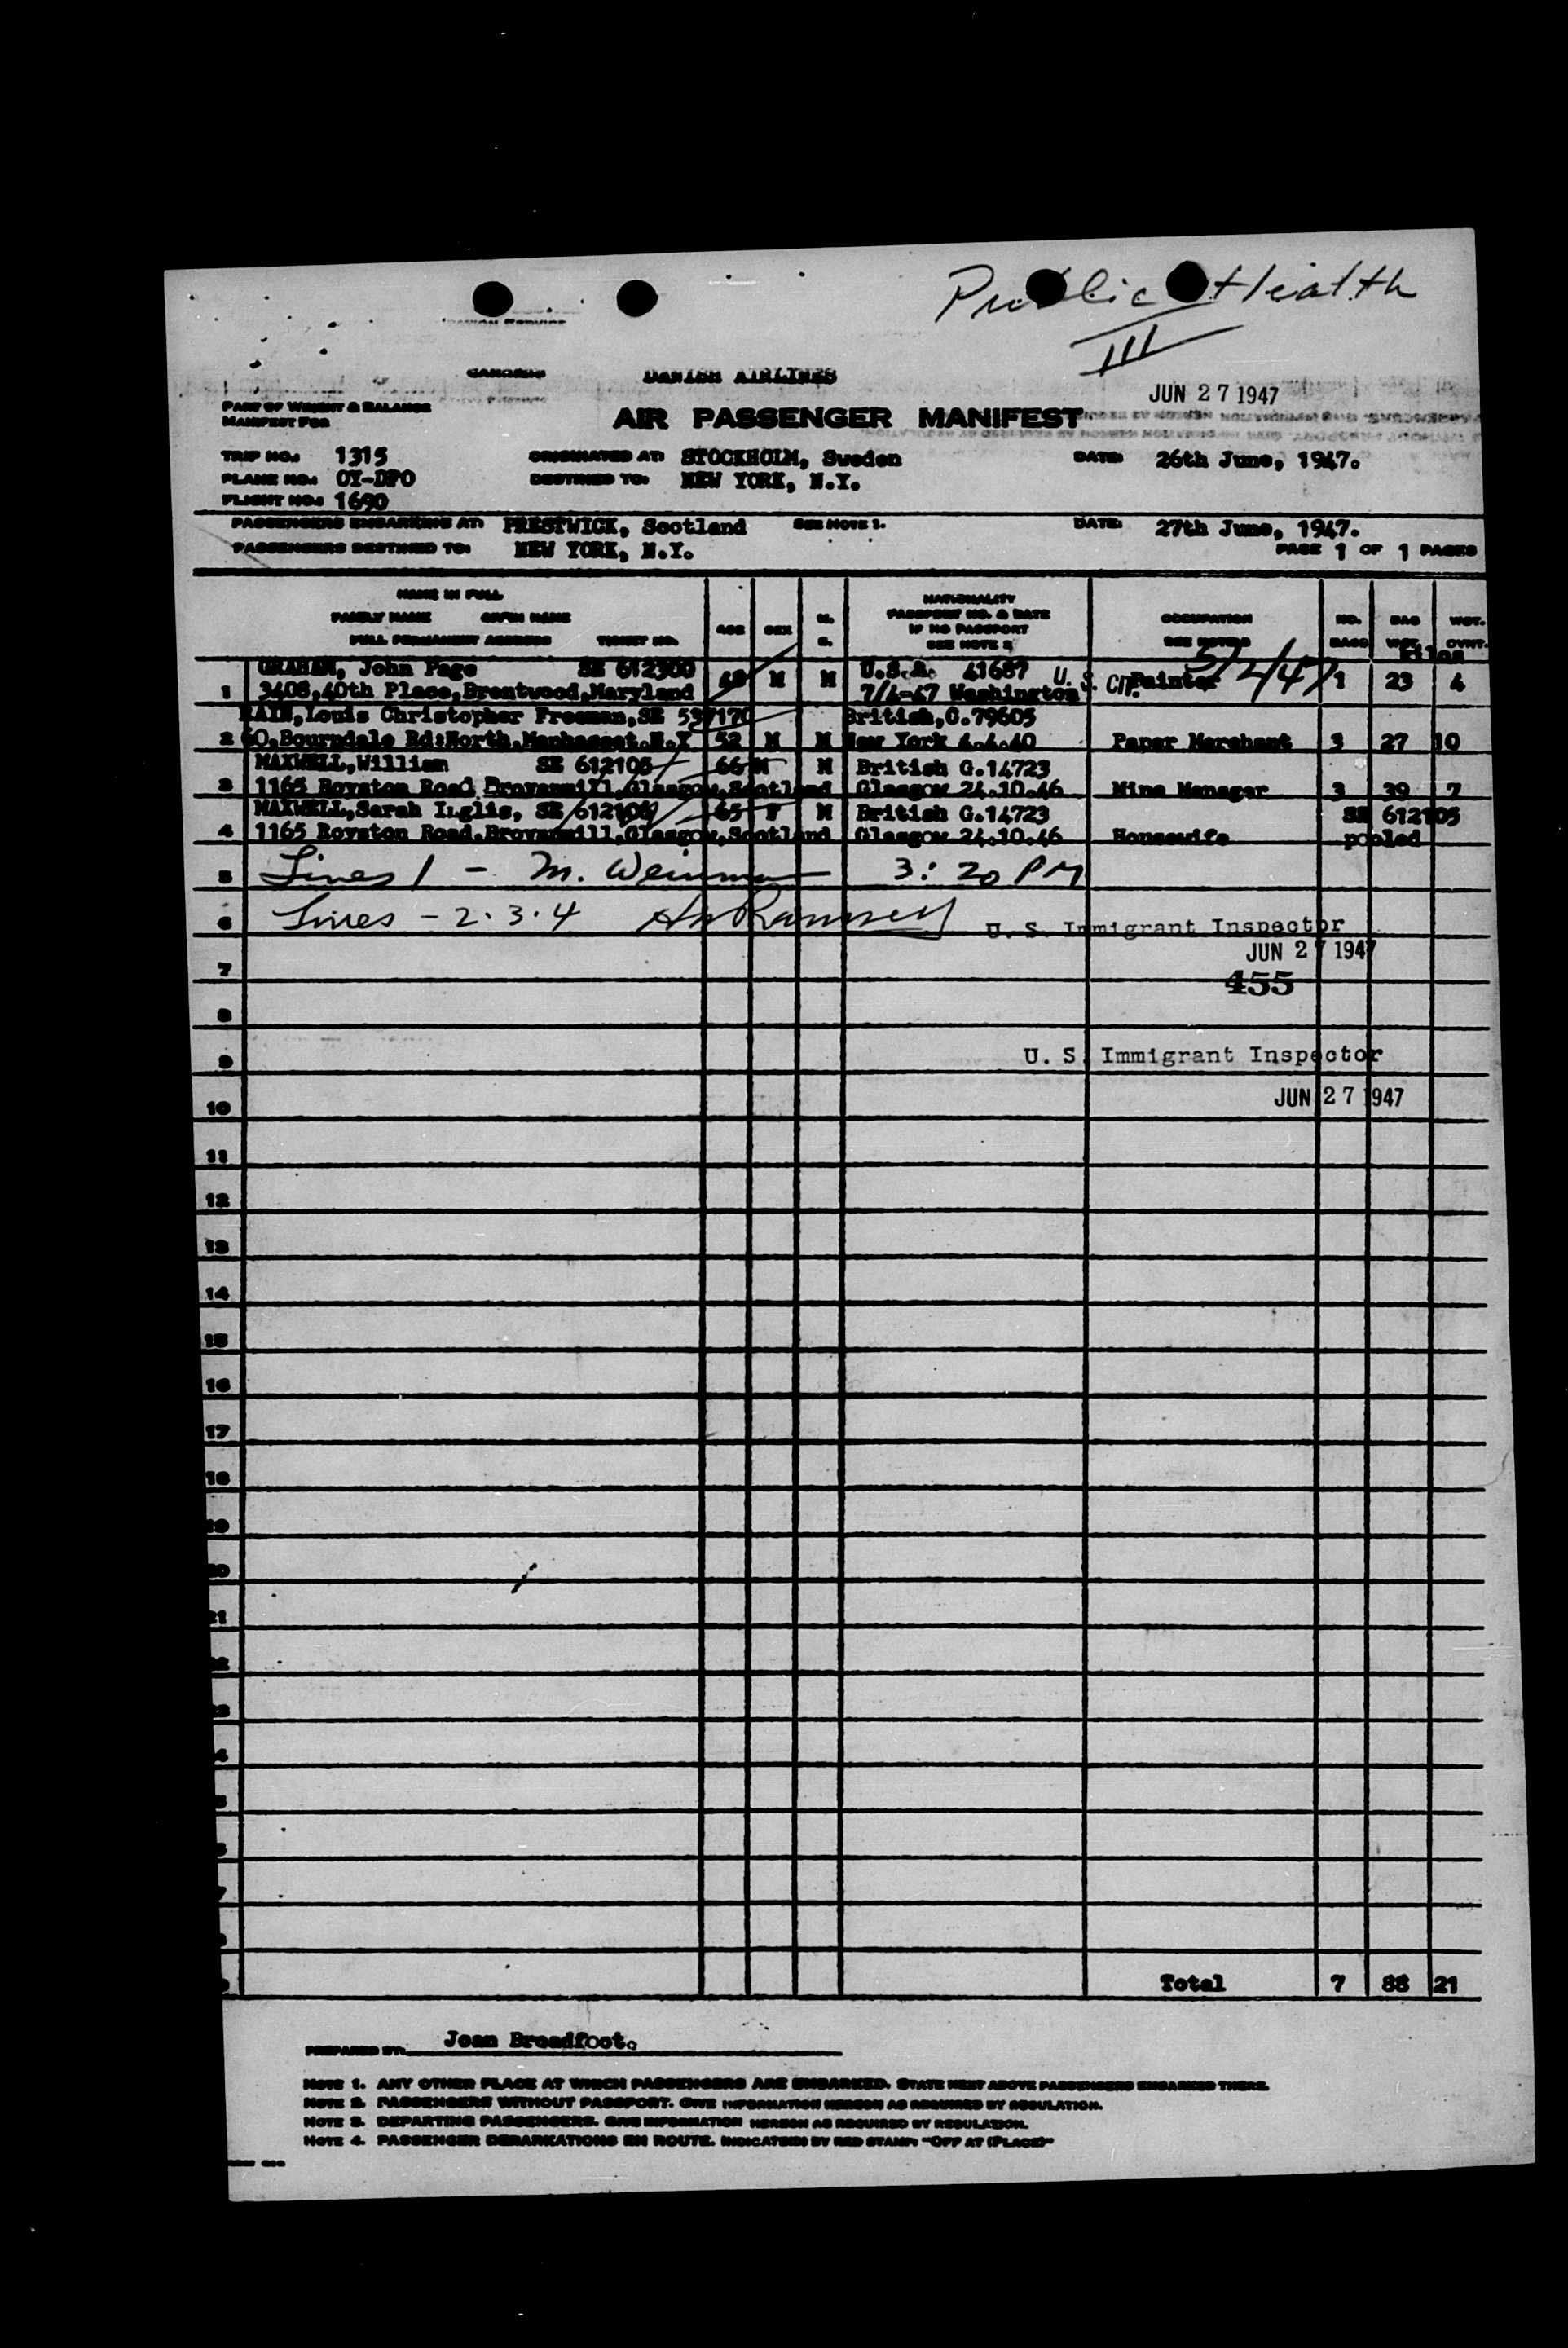 Public Health
III
DANISH AIRLINES
JUN 27 1947
PART OF WEIGHT & BALANCE
MANIFEST FOR
AIR PASSENGER MANIFEST
TRIP NO.: 1315 ORIGINATED AT: STOCKHOLM, Sweden DATE: 26th June, 1947.
PLANE NO.: OY-DFO DESTINED TO: NEW YORK, N.Y.
FLIGHT NO.: 1690
PASSENGERS EMBARKING AT: PRESTWICK, Scotland SEE NOTE 1. DATE: 27th June, 1947.
PASSENGERS DESTINED TO: NEW YORK, N.Y. PAGE 1 OF 1 PAGES
NAME IN FULL NATIONALITY
FAMILY NAME GIVEN NAME M. PASSPORT NO. & DATE OCCUPATION NO. BAG WGT.
AGE SEX IF NO PASSPORT
FULL PERMANENT ADDRESS TICKET NO. S. SEE NOTE 2 SEE NOTES BAGS WGT. OVHT.
Kilos
5/2/47
GRAHAM, John Page SE 612300 U.S.A. 41687
1 3408, 40th Place, Brentwood, Maryland 48 M M 7/4-47 Washington U. S. CIT. Painter 1 23 4
Louis Christopher Freeman, SE 537170 British, C.79605
2 60, Bourndale Rd: North, Manhasset, N.Y 52 M M New York 4.4.40 Paper Merchant 3 27 10
MAXWELL, William SE 612105 66 M M British G.14723
3 1165 Royston Road Provanmill, Glasgow, Scotland Glasgow 24.10.46 Mine Manager 3 39 7
MAXWELL, Sarah Inglis, SE 612106 65 F M British G.14723 SE 612105
4 1165 Royston Road, Provanmill, Glasgow, Scotland Glasgow 24.10.46 Housewife pooled
5 Lines 1 - M. Weinman 3:20 PM
6 Lines - 2.3.4
U. S. Immigrant Inspector
7 JUN 27 1947
455
8
9 U. S. Immigrant Inspector
10 JUN 27 1947
11
12
13
14
15
16
17
18
19
20
21
22
23
4
5
6
7
Total 7 88 21
PREPARED BY: Jean Broadfoot.
NOTE 1. ANY OTHER PLACE AT WHICH PASSENGERS ARE EMBARKED. STATE NEXT ABOVE PASSENGERS EMBARKED THERE.
NOTE 2. PASSENGERS WITHOUT PASSPORT. GIVE INFORMATION HEREON AS REQUIRED BY REGULATION.
NOTE 3. DEPARTING PASSENGERS. GIVE INFORMATION HEREON AS REQUIRED BY REGULATION.
NOTE 4. PASSENGER DEBARKATIONS EN ROUTE. INDICATED BY RED STAMP: "OFF AT (PLACE)"